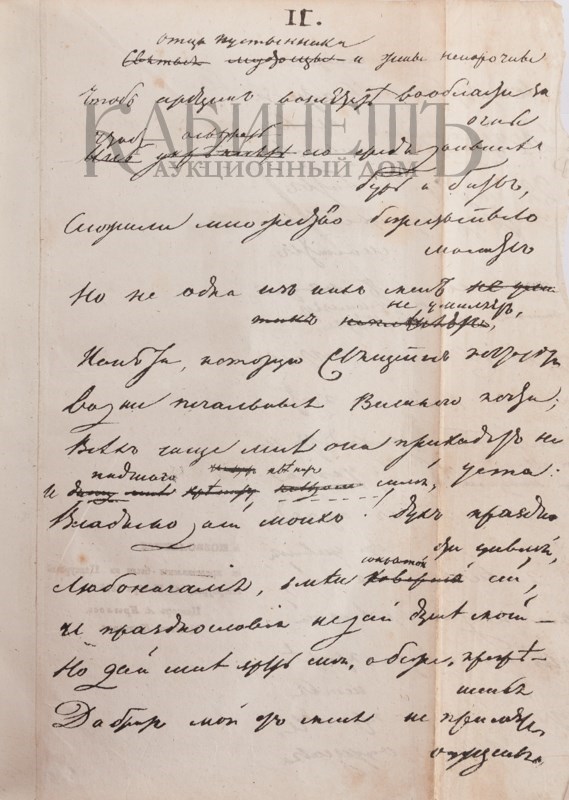 II.
отцы пустынники
Святые мудрецы и жены непорочны
Чтоб сердцемъ возлетать во области за
очны
Чтоб укреплять его средь дольнихъ
бурь и битвъ,
Сложили множество божественныхъ
молитвъ
Но не одна изъ нихъ меня
не умиляетъ,
Какъ та, которую Священникъ повторяетъ
Во дни печальные Великаго поста;
Всѣхъ чаще мнѣ она приходитъ на
И падшаго силой, уста:
Владыко дней моихъ! духъ праздно
сти унылой,
сокрытой
Любоначалія, змѣи коварной сей,
И празднословія не дай душѣ моей —
Но дай мнѣ зрѣть мои, о боже, прегрѣ—
шенья
Да братъ мой отъ меня не приметъ
осужденья
КАБИНЕТЪ
АУКЦИОННЫЙ ДОМ